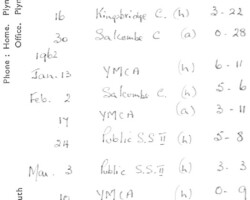 Phone : Home, Plym
Office, Plym
16 Kingsbridge C. (h) 3-22
30 Salcombe C. (a) 0-28
1962
Jan. 13 YMCA (h) 6-11
Feb. 2 Salcombe C. (h) 5-6
17 YMCA (a) 3-11
24 Public S.S. II (h) 5-8
Mar. 3 Public S.S. II (h) 3-3
10 YMCA (h) 0-9
outh